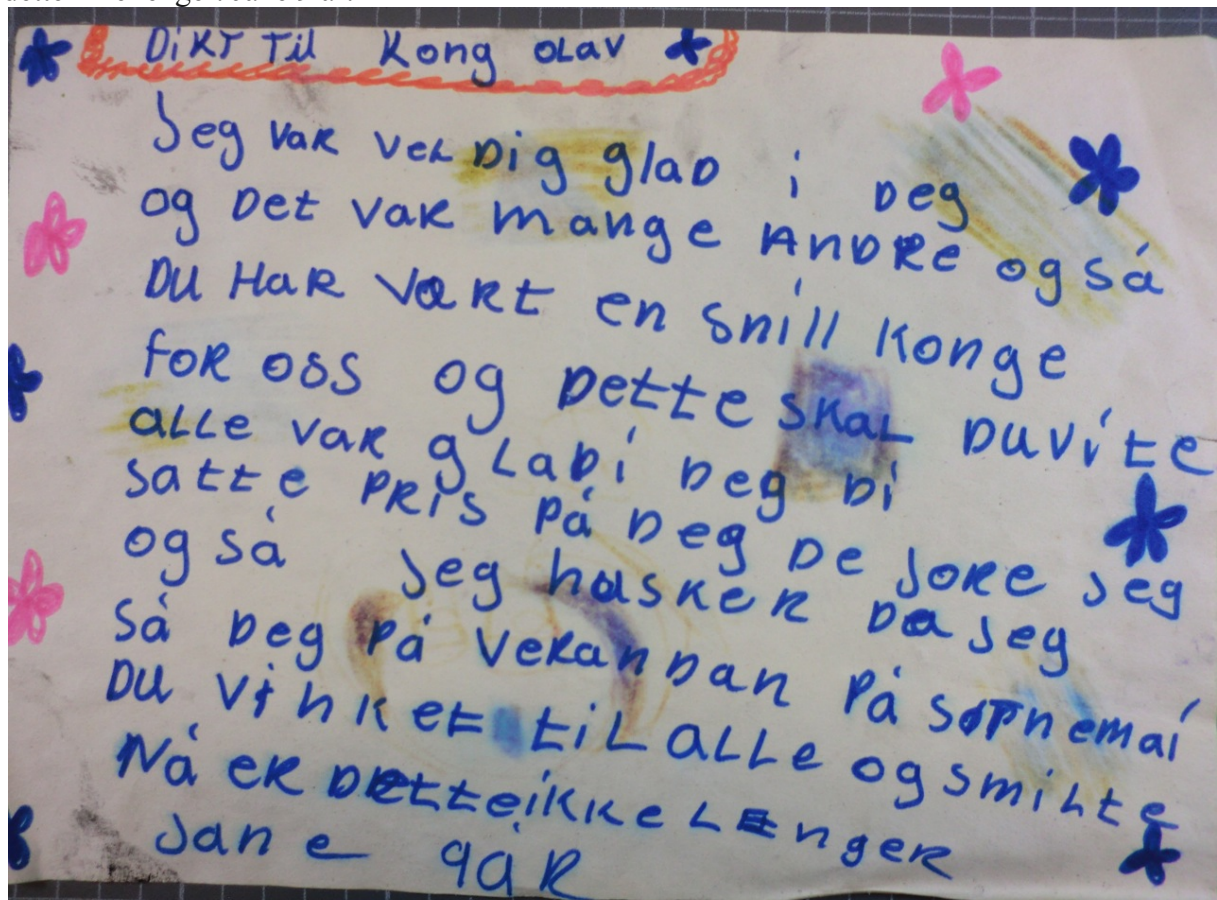 DiKT Til Kong OLAV
Jeg VAR VELDig glAD i Deg
og Det VAR mange ANDRE også
DU HAR VÆRT en snill Konge
FOR OSS og DETTE SKAL DUVITE
ALLE VAR gLADi Deg Di
SATTE PRIS PÅ Deg DE JORE Jeg
også Jeg husKeR Da Jeg
Så Deg PÅ VeRAnDan PÅ søTnemai
DU VinKeT tiL ALLe og smiLte
Nå ER DETTeiKKe LEngeR
Jane 9ÅR